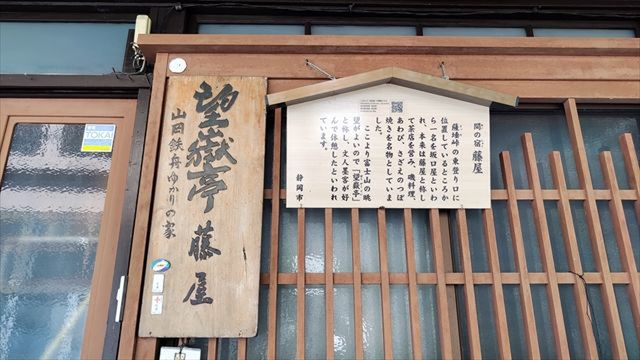 間の宿 藤屋
薩埵峠の東登り口に
位置しているところか
ら一名を坂口屋といわ
れ、本来は藤屋と称し
て茶店を営み、磯料理、
あわび、さざえのつぼ
焼きを名物としていま
した。
ここより富士山の眺
望がよいので「望嶽亭」
と称し、文人墨客が好
んで休憩したといわれ
ています。
静岡市
望嶽亭 藤屋
山岡鉄舟ゆかりの家
TOKAI